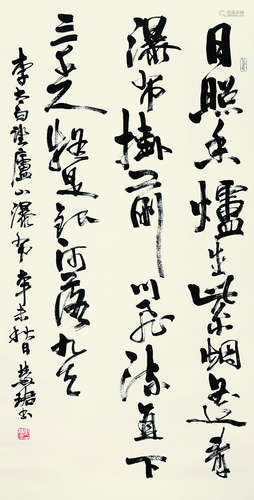 日照香爐生紫烟遥看
瀑布掛前川飛流直下
三千尺疑是銀河落九天
李太白望廬山瀑布 辛未秋日 慧珺書